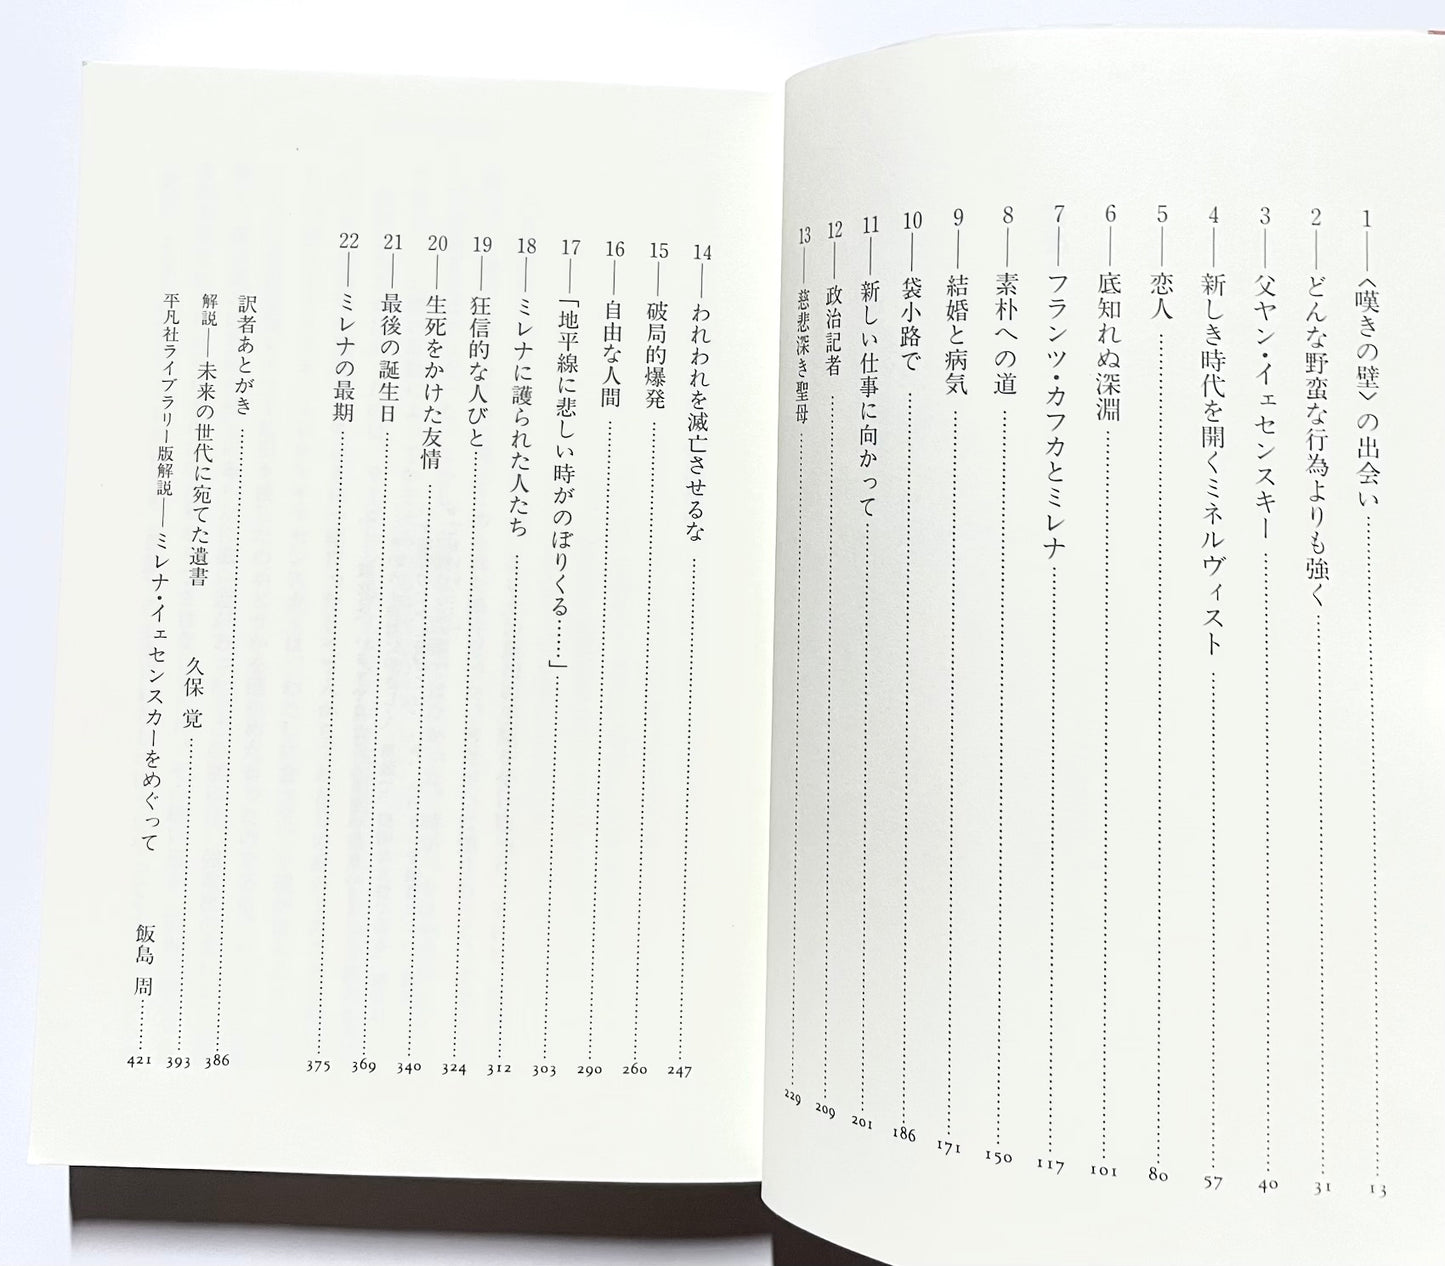 1──〈嘆きの壁〉の出会い……13
2──どんな野蛮な行為よりも強く……31
3──父ヤン・イェセンスキー……40
4──新しき時代を開くミネルヴィスト……57
5──恋人……80
6──底知れぬ深淵……101
7──フランツ・カフカとミレナ……117
8──素朴への道……150
9──結婚と病気……171
10──袋小路で……186
11──新しい仕事に向かって……201
12──政治記者……209
13──慈悲深き聖母……229
14──われわれを滅亡させるな……247
15──破局的爆発……260
16──自由な人間……290
17──「地平線に悲しい時がのぼりくる……」……303
18──ミレナに護られた人たち……312
19──狂信的な人びと……324
20──生死をかけた友情……340
21──最後の誕生日……369
22──ミレナの最期……375
訳者あとがき……386
解説──未来の世代に宛てた遺書 久保 覚……393
平凡社ライブラリー版解説──ミレナ・イェセンスカーをめぐって 飯島 周……421